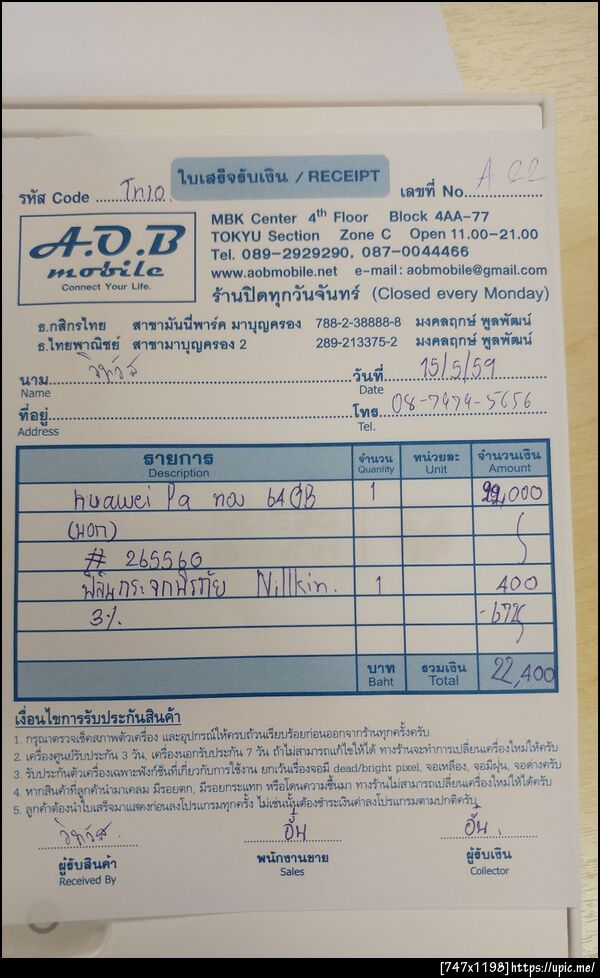 ใบเสร็จรับเงิน / RECEIPT
รหัส Code Tn10
เลขที่ No. A 22
A.O.B
mobile
Connect Your Life.
MBK Center 4th Floor Block 4AA-77
TOKYU Section Zone C Open 11.00-21.00
Tel. 089-2929290, 087-0044466
www.aobmobile.net e-mail: aobmobile@gmail.com
ร้านปิดทุกวันจันทร์ (Closed every Monday)
ธ.กสิกรไทย สาขามันนี่พาร์ค มาบุญครอง 788-2-38888-8 มงคลฤกษ์ พูลพัฒน์
ธ.ไทยพาณิชย์ สาขามาบุญครอง 2 289-213375-2 มงคลฤกษ์ พูลพัฒน์
นาม วันที่ 15/5/59
Name Date
ที่อยู่ โทร. 08-7494-5656
Address Tel.
รายการ จำนวน หน่วยละ จำนวนเงิน
Description Quanlity Unit Amount
huawei P9 ทอง 64GB 1 22,000
(นอก)
# 265560
ฟิล์มกระจกนิรภัย Nillkin. 1 400
3% -672
บาท รวมเงิน 22,400
Baht Total
เงื่อนไขการรับประกันสินค้า
1. กรุณาตรวจเช็คสภาพตัวเครื่อง และอุปกรณ์ให้ครบถ้วนเรียบร้อยก่อนออกจากร้านทุกครั้งครับ
2. เครื่องศูนย์รับประกัน 3 วัน, เครื่องนอกรับประกัน 7 วัน ถ้าไม่สามารถแก้ไขให้ได้ ทางร้านจะทำการเปลี่ยนเครื่องใหม่ให้ครับ
3. รับประกันตัวเครื่องเฉพาะฟังก์ชั่นที่เกี่ยวกับการใช้งาน ยกเว้นเรื่องจอมี dead/bright pixel, จอเหลือง, จอมีฝุ่น, จอด่างครับ
4. หากสินค้าที่ลูกค้านำมาเคลม มีรอยตก, มีรอยกระแทก หรือโดนความชื้นมา ทางร้านไม่สามารถเปลี่ยนเครื่องใหม่ให้ได้ครับ
5. ลูกค้าต้องนำใบเสร็จมาแสดงก่อนลงโปรแกรมทุกครั้ง ไม่เช่นนั้นต้องชำระเงินค่าลงโปรแกรมตามปกติครับ
อั๋น อั๋น
ผู้รับสินค้า พนักงานขาย ผู้รับเงิน
Received By Sales Collector
[747x1198]https://upic.me/